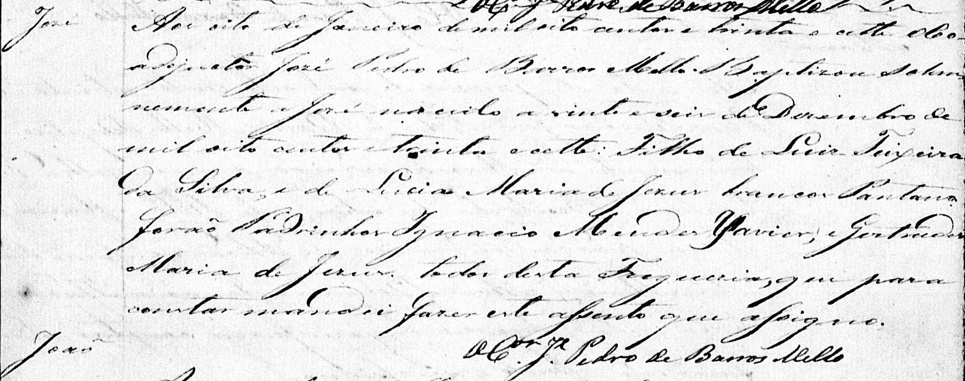 O Cor. Je. Pedro de Barros Mello
José
Aos oito de Janeiro de mil oito centos e trinta e oitto o Co-
adjuctor José Pedro de Barros Mello Baptizou solem
nemente a José nascido a vinte e seis de Dezembro de
mil oito centos e trinta e oitto: Filho de Luis Teixeira
da Silva, e de Lucia Maria de Jezus brancos Pantano
forão Padrinhos Ignacio Mendes Xavier, e Gertrudes
Maria de Jezus todos desta Freguezia, que para
constar mandei fazer este assento que assigno.
O Cor. Je. Pedro de Barros Mello
João